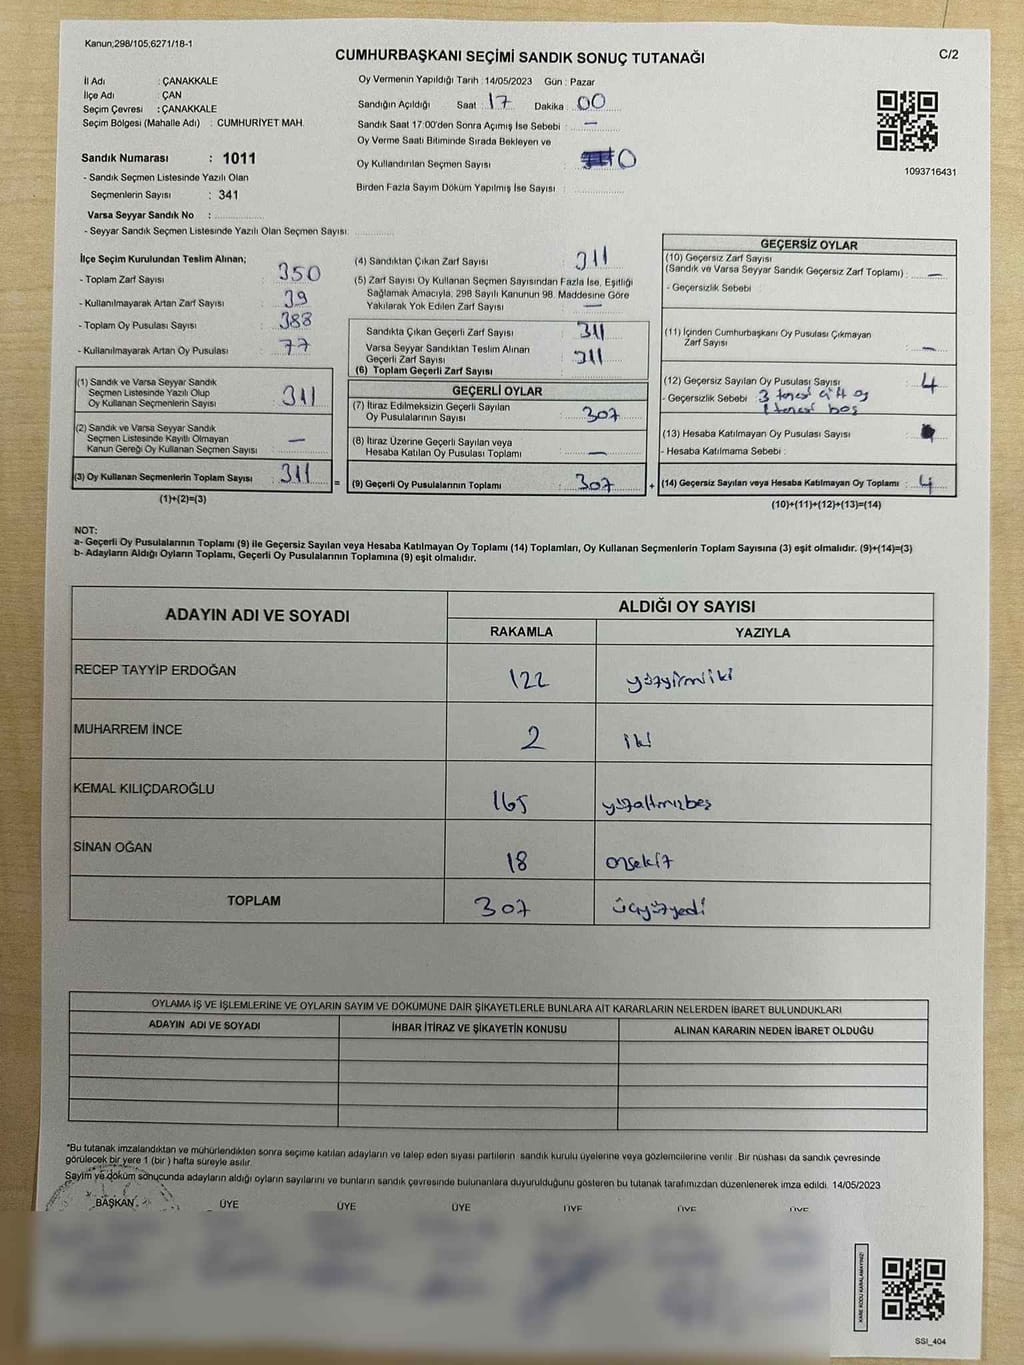 Kanun,298/105,6271/18-1
CUMHURBAŞKANI SEÇİMİ SANDIK SONUÇ TUTANAĞI
C/2
İl Adı : ÇANAKKALE
İlçe Adı : ÇAN
Seçim Çevresi : ÇANAKKALE
Seçim Bölgesi (Mahalle Adı) : CUMHURİYET MAH.
Sandık Numarası : 1011
- Sandık Seçmen Listesinde Yazılı Olan
Seçmenlerin Sayısı : 341
Varsa Seyyar Sandık No :
- Seyyar Sandık Seçmen Listesinde Yazılı Olan Seçmen Sayısı:
Oy Vermenin Yapıldığı Tarih :14/05/2023 Gün : Pazar
Sandığın Açıldığı Saat : 17 Dakika : 00
Sandık Saat 17:00'den Sonra Açımış İse Sebebi : —
Oy Verme Saati Bitiminde Sırada Bekleyen ve
Oy Kullandırılan Seçmen Sayısı : 0
Birden Fazla Sayım Döküm Yapılmış İse Sayısı :
1093716431
İlçe Seçim Kurulundan Teslim Alınan;
- Toplam Zarf Sayısı : 350
- Kullanılmayarak Artan Zarf Sayısı : 39
- Toplam Oy Pusulası Sayısı : 388
- Kullanılmayarak Artan Oy Pusulası : 77
(1) Sandık ve Varsa Seyyar Sandık
Seçmen Listesinde Yazılı Olup
Oy Kullanan Seçmenlerin Sayısı : 311
(2) Sandık ve Varsa Seyyar Sandık
Seçmen Listesinde Kayıtlı Olmayan
Kanun Gereği Oy Kullanan Seçmen Sayısı : —
(3) Oy Kullanan Seçmenlerin Toplam Sayısı : 311
(1)+(2)=(3)
(4) Sandıktan Çıkan Zarf Sayısı : 311
(5) Zarf Sayısı Oy Kullanan Seçmen Sayısından Fazla İse, Eşitliği
Sağlamak Amacıyla, 298 Sayılı Kanunun 98. Maddesine Göre
Yakılarak Yok Edilen Zarf Sayısı : —
Sandıkta Çıkan Geçerli Zarf Sayısı : 311
Varsa Seyyar Sandıktan Teslim Alınan
Geçerli Zarf Sayısı : 311
(6) Toplam Geçerli Zarf Sayısı :
GEÇERLİ OYLAR
(7) İtiraz Edilmeksizin Geçerli Sayılan
Oy Pusulalarının Sayısı : 307
(8) İtiraz Üzerine Geçerli Sayılan veya
Hesaba Katılan Oy Pusulası Toplamı : —
= (9) Geçerli Oy Pusulalarının Toplamı : 307
GEÇERSİZ OYLAR
(10) Geçersiz Zarf Sayısı
(Sandık ve Varsa Seyyar Sandık Geçersiz Zarf Toplamı) : —
- Geçersizlik Sebebi :
(11) İçinden Cumhurbaşkanı Oy Pusulası Çıkmayan
Zarf Sayısı : —
(12) Geçersiz Sayılan Oy Pusulası Sayısı : 4
- Geçersizlik Sebebi : 3 tanesi çift oy
1 tanesi boş
(13) Hesaba Katılmayan Oy Pusulası Sayısı :
- Hesaba Katılmama Sebebi :
+ (14) Geçersiz Sayılan veya Hesaba Katılmayan Oy Toplamı : 4
(10)+(11)+(12)+(13)=(14)
NOT:
a- Geçerli Oy Pusulalarının Toplamı (9) ile Geçersiz Sayılan veya Hesaba Katılmayan Oy Toplamı (14) Toplamları, Oy Kullanan Seçmenlerin Toplam Sayısına (3) eşit olmalıdır. (9)+(14)=(3)
b- Adayların Aldığı Oyların Toplamı, Geçerli Oy Pusulalarının Toplamına (9) eşit olmalıdır.
ADAYIN ADI VE SOYADI ALDIĞI OY SAYISI
RAKAMLA YAZIYLA
RECEP TAYYİP ERDOĞAN 122 yüzyirmiiki
MUHARREM İNCE 2 iki
KEMAL KILIÇDAROĞLU 165 yüzaltmışbeş
SİNAN OĞAN 18 onsekiz
TOPLAM 307 üçyüzyedi
OYLAMA İŞ VE İŞLEMLERİNE VE OYLARIN SAYIM VE DÖKÜMÜNE DAİR ŞİKAYETLERLE BUNLARA AİT KARARLARIN NELERDEN İBARET BULUNDUKLARI
ADAYIN ADI VE SOYADI İHBAR İTİRAZ VE ŞİKAYETİN KONUSU ALINAN KARARIN NEDEN İBARET OLDUĞU
*Bu tutanak imzalandıktan ve mühürlendikten sonra seçime katılan adayların ve talep eden siyasi partilerin sandık kurulu üyelerine veya gözlemcilerine verilir. Bir nüshası da sandık çevresinde
görülecek bir yere 1 (bir ) hafta süreyle asılır.
Sayım ve döküm sonucunda adayların aldığı oyların sayılarını ve bunların sandık çevresinde bulunanlara duyurulduğunu gösteren bu tutanak tarafımızdan düzenlenerek imza edildi. 14/05/2023
BAŞKAN ÜYE ÜYE ÜYE ÜYE ÜYE ÜYE
KARE KODU KARALAMAYINIZ!
SSI_404